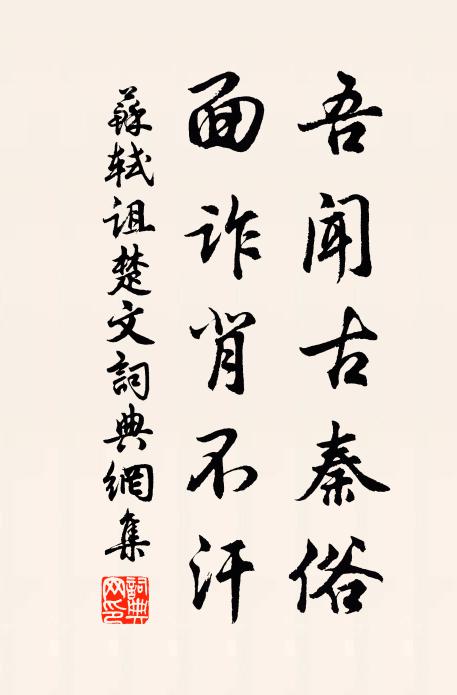 吾闻古秦俗
面诈背不汗
蘇轼诅楚文詞典網集
詞典
网印